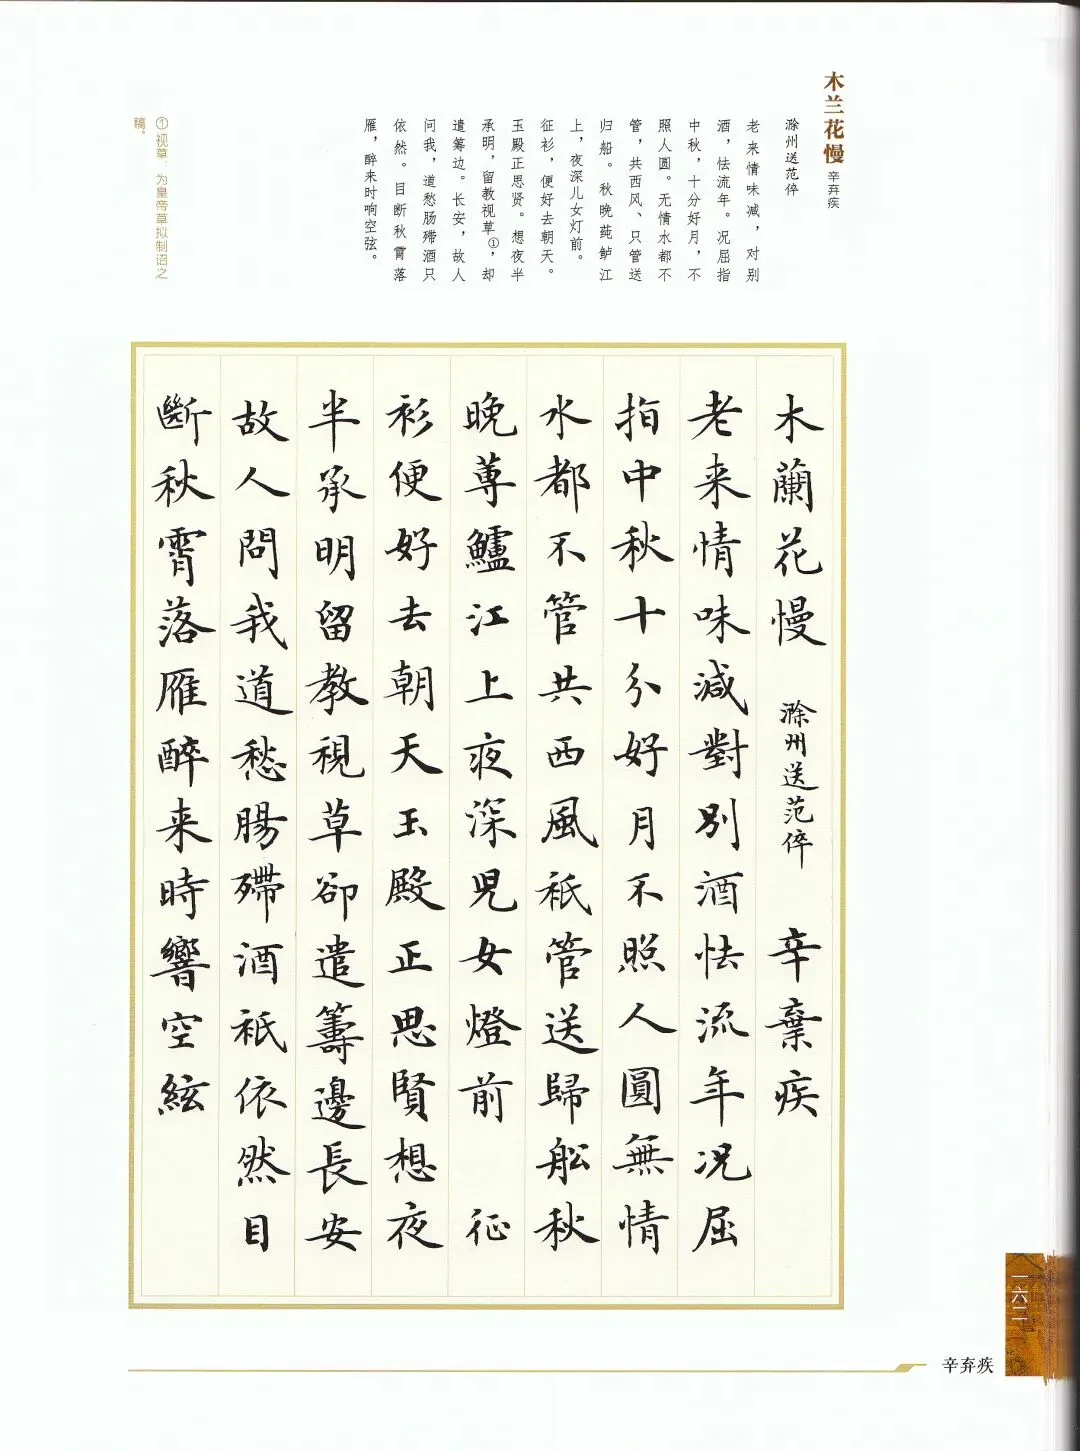 木兰花慢 辛弃疾
滁州送范倅
老来情味减，对别
酒，怯流年。况屈指
中秋，十分好月，不
照人圆。无情水都不
管，共西风、只管送
归船。秋晚莼鲈江
上，夜深儿女灯前。
征衫，便好去朝天。
玉殿正思贤。想夜半
承明，留教视草①，却
遣筹边。长安，故人
问我，道愁肠殢酒只
依然。目断秋霄落
雁，醉来时响空弦。
①视草：为皇帝草拟制诏之
稿。
木蘭花慢 滁州送范倅 辛棄疾
老来情味減對別酒怯流年况屈
指中秋十分好月不照人圓無情
水都不管共西風祇管送歸舩秋
晚蓴鱸江上夜深兒女燈前 征
衫便好去朝天玉殿正思賢想夜
半承明留教視草卻遣籌邊長安
故人問我道愁腸殢酒祇依然目
斷秋霄落雁醉来時響空絃
一六二
辛弃疾